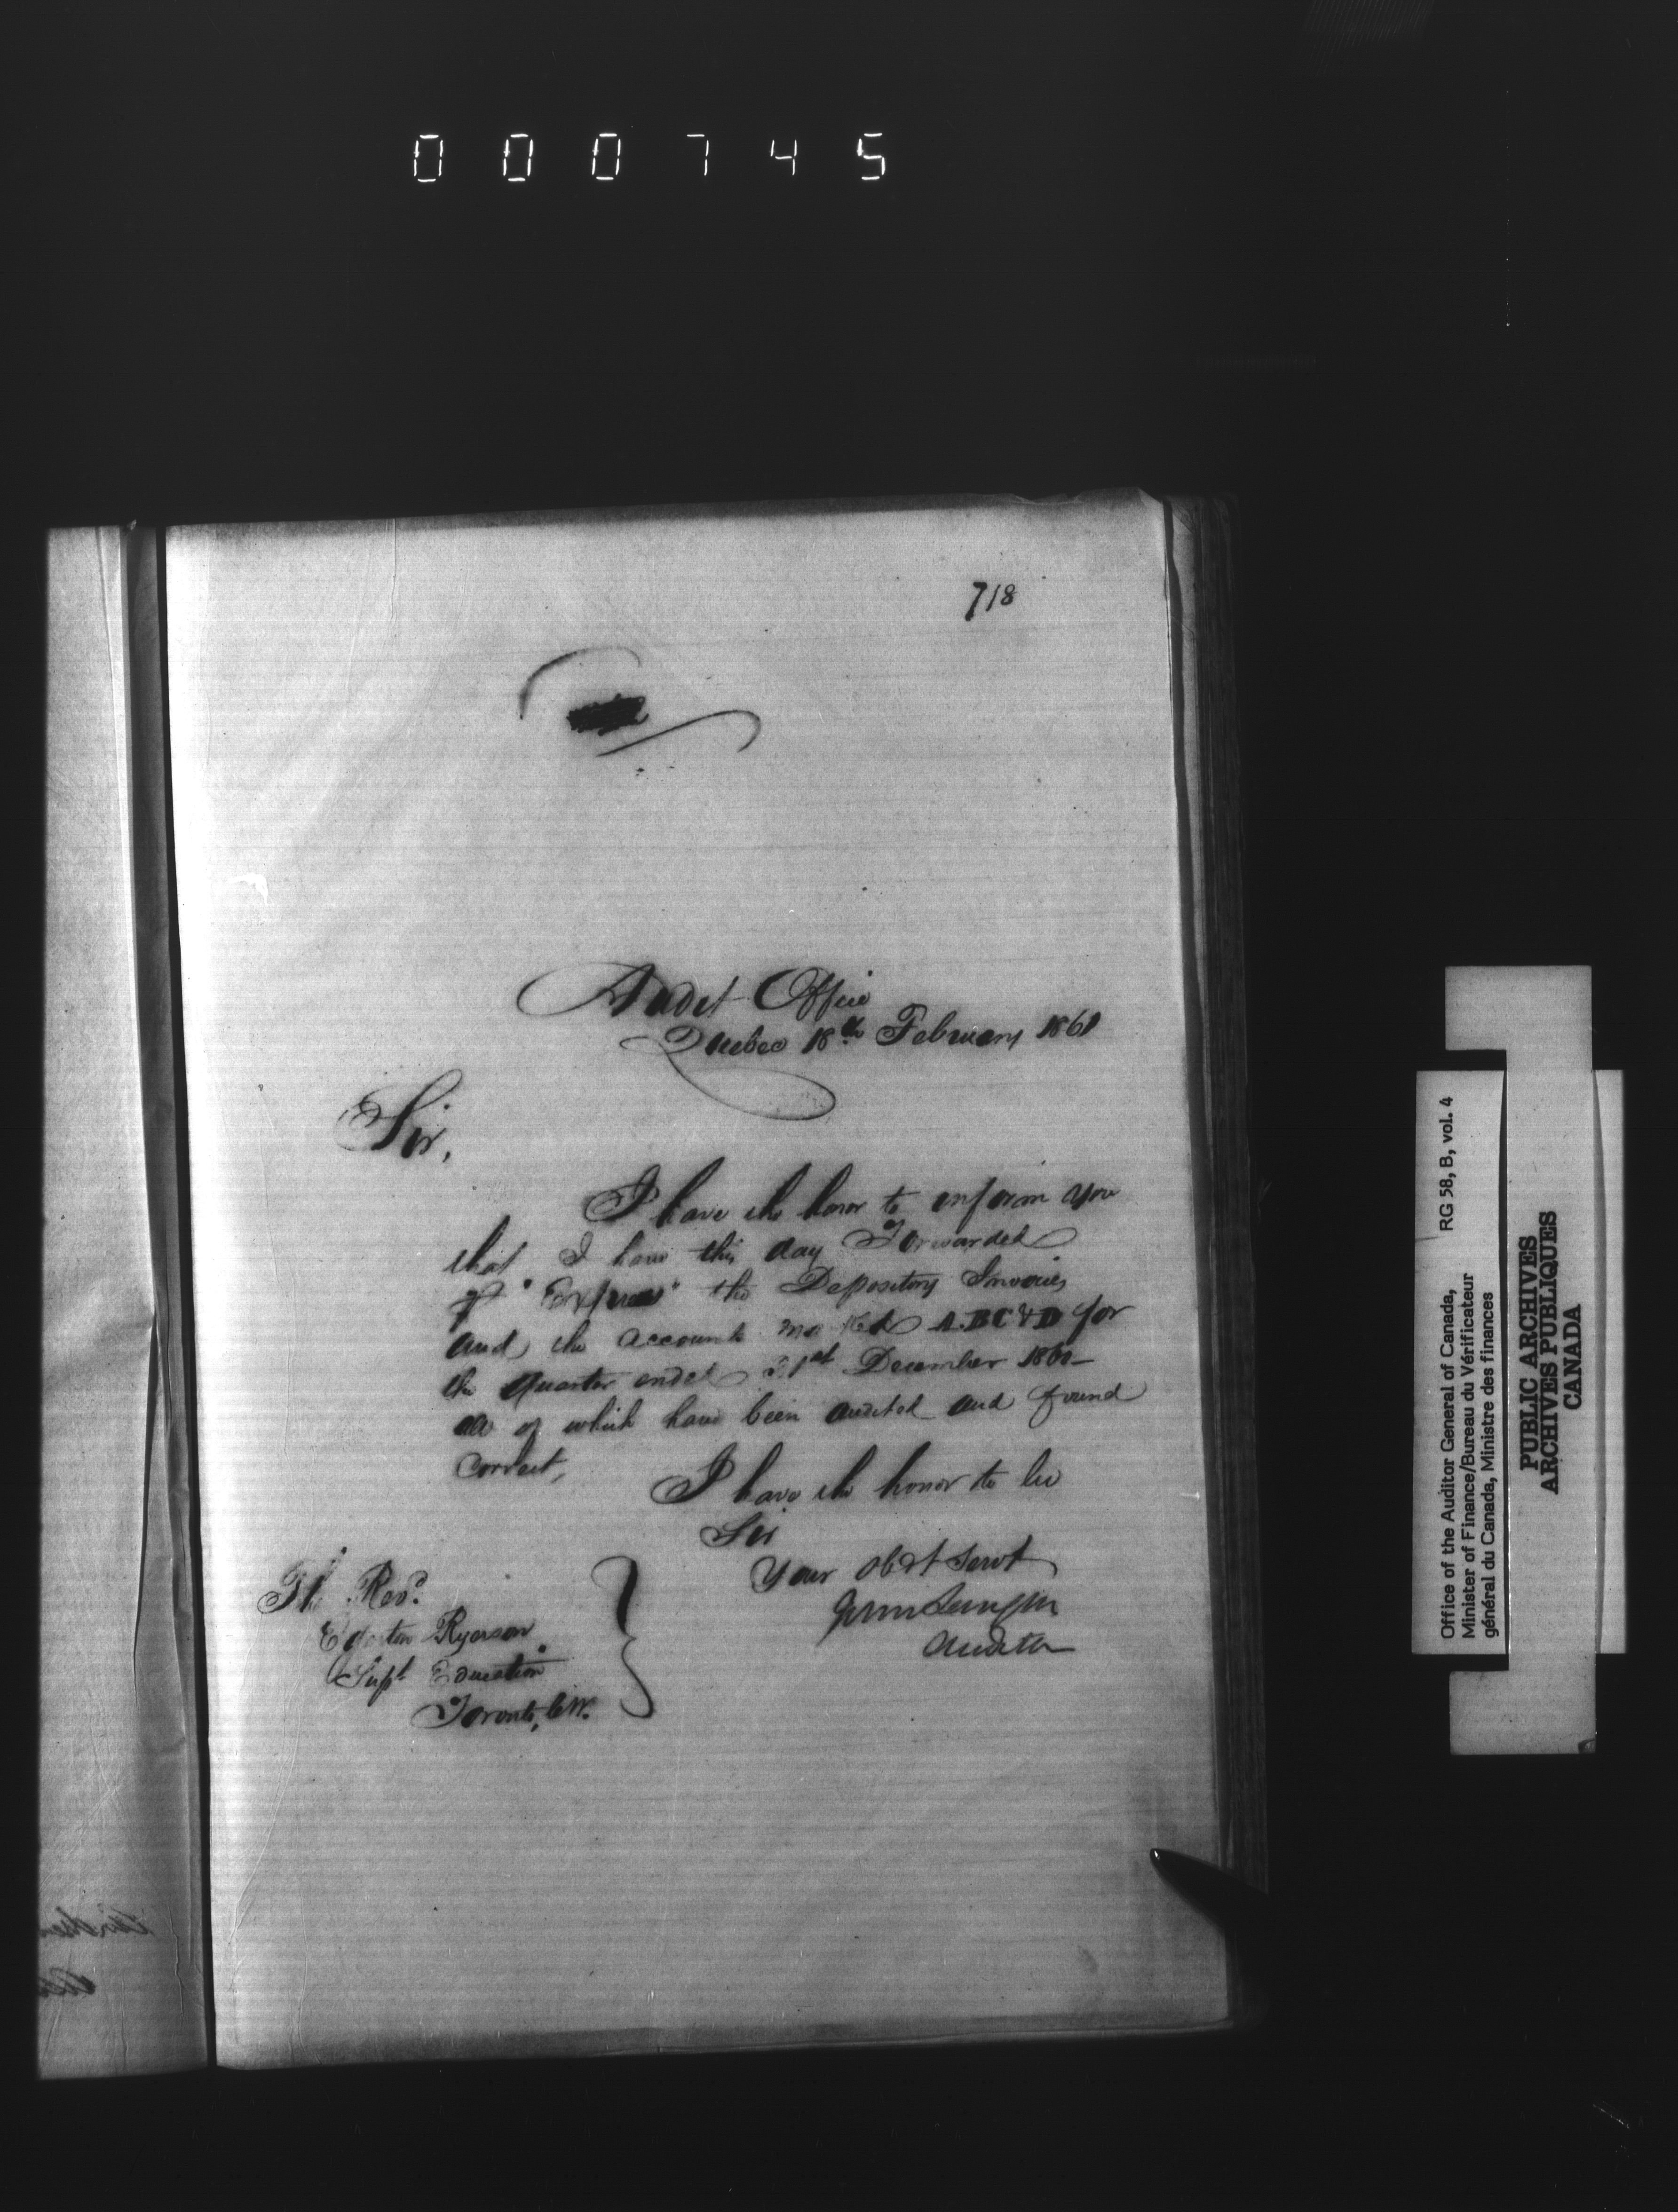 000745
718
Audit Office
Quebec 18th February 1861
Sir,
I have the honor to inform you
that I have this day Forwarded
pr "Express" the Depository Invoices
and the accounts marked A.B C & D for
the Quarter ended 31st December 1860
all of which have been audited and found
correct,
I have the honor to be
Sir
Your Obdt Servt
John Langton
Auditor
The Revd.
Egerton Ryerson
Supt Education
Toronto, C.W.
Office of the Auditor General of Canada, RG 58, B, vol. 4
Minister of Finance/Bureau du Vérificateur
général du Canada, Ministre des finances
PUBLIC ARCHIVES
ARCHIVES PUBLIQUES
CANADA